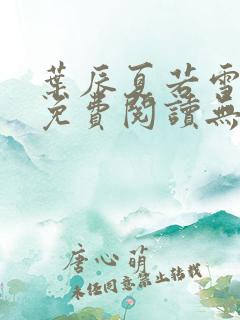 葉辰夏若雪
免費閱讀無
唐心萌
未经同意禁止转载